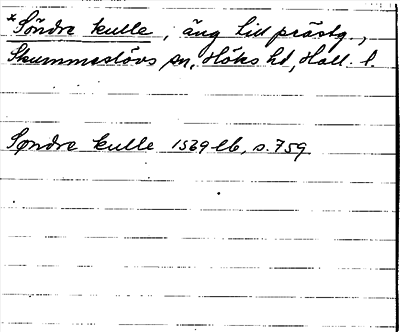 *Söndre kulle, äng till prästg.,
Skummeslövs sn, Höks hd, Hall. l.
Søndre kulle 1569 lb, s. 759